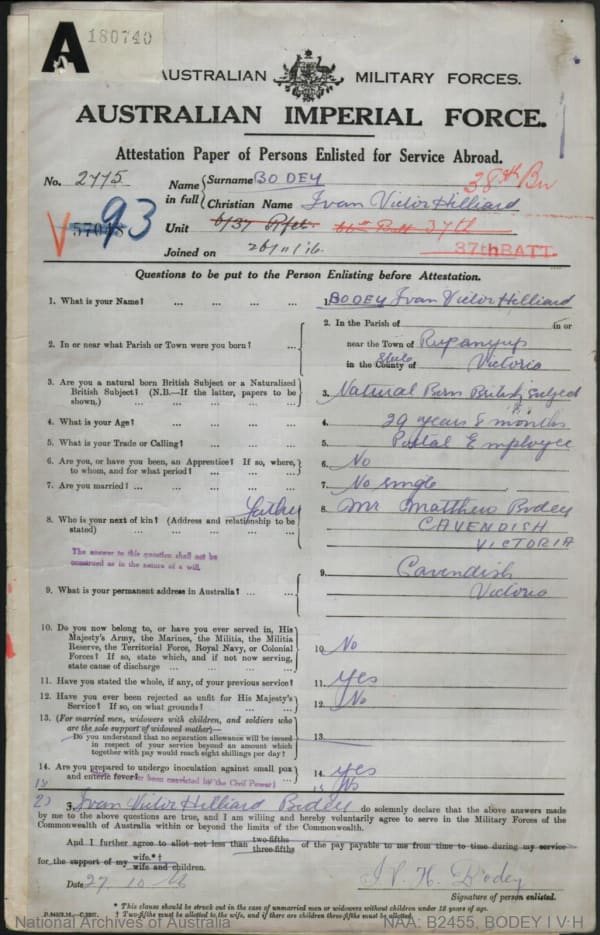 A
180740
AUSTRALIAN MILITARY FORCES.
AUSTRALIAN IMPERIAL FORCE.
Attestation Paper of Persons Enlisted for Service Abroad.
No. 2775
Name in full
Surname BODEY
38th Bn
Christian Name Ivan Victor Hilliard
57048 93
Unit 6/37 Rfct. 37th
37th BATT.
Joined on 26/11/16.
Questions to be put to the Person Enlisting before Attestation.
1. What is your Name? ... ... ... ... 1. BODEY Ivan Victor Hilliard
2. In or near what Parish or Town were you born? ...
2. In the Parish of in or
near the Town of Rupanyup
in the County of State Victoria
3. Are you a natural born British Subject or a Naturalised
British Subject? (N.B.—If the latter, papers to be
shown.) ... ... ... ... ... 3. Natural Born British Subject
4. What is your Age? ... ... ... ... 4. 29 years 8 months
5. What is your Trade or Calling? ... ... ... 5. Postal Employee
6. Are you, or have you been, an Apprentice? If so, where,
to whom, and for what period? ... ... ... 6. No
7. Are you married? ... ... ... ... ... 7. No single
8. Who is your next of kin? (Address and relationship to be
stated) ... ... ... ... ...
Father
8. Mr Matthew Bodey
CAVENDISH
VICTORIA
The answer to this question shall not be
construed as in the nature of a will.
9. What is your permanent address in Australia? ...
9. Cavendish
Victoria
10. Do you now belong to, or have you ever served in, His
Majesty's Army, the Marines, the Militia, the Militia
Reserve, the Territorial Force, Royal Navy, or Colonial
Forces? If so, state which, and if not now serving,
state cause of discharge ... ... ... 10. No
11. Have you stated the whole, if any, of your previous service? 11. Yes
12. Have you ever been rejected as unfit for His Majesty's
Service? If so, on what grounds? ... ... 12. No
13. (For married men, widowers with children, and soldiers who
are the sole support of widowed mother)—
Do you understand that no separation allowance will be issued
in respect of your service beyond an amount which
together with pay would reach eight shillings per day?
13.
14. Are you prepared to undergo inoculation against small pox
and enteric fever? 14. Yes
15 ever been convicted by the Civil Power? 15 No
I, Ivan Victor Hilliard Bodey do solemnly declare that the above answers made
by me to the above questions are true, and I am willing and hereby voluntarily agree to serve in the Military Forces of the
Commonwealth of Australia within or beyond the limits of the Commonwealth.
And I further agree to allot not less than two-fifths three-fifths of the pay payable to me from time to time during my service
for the support of my wife.*† wife and children.
Date 27.10.16
I. V. H. Bodey
Signature of person enlisted.
* This clause should be struck out in the case of unmarried men or widowers without children under 18 years of age.
† Two-fifths must be allotted to the wife, and if there are children three-fifths must be allotted.
National Archives of Australia
NAA: B2455, BODEY I V H